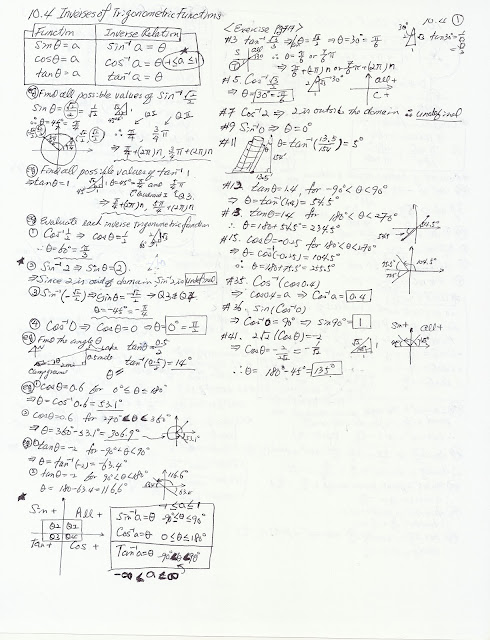 10.4 Inverses of Trigonometric Functions
Function Inverse Relation
Sinθ=a Sin⁻¹a=θ
cosθ=a cos⁻¹a=θ -1≤a≤1
tanθ=a tan⁻¹a=θ
Find all possible values of Sin⁻¹ √2/2
Sinθ=√2/2=1/√2
∴θ=45°=π/4
∴ π/4, 3/4π
⇒ π/4+(2π)n, 3π/4+(2π)n
Find all possible values of tan⁻¹1
⇒tanθ=1 ∴θ=45°=π/4 and 5/4π
Quadrant I Q3.
⇒ π/4+(2π)n, 5π/4+(2π)n
Evaluate each inverse trigonometric function
① Cos⁻¹ 1/2 ⇒ cosθ=1/2
∴θ=60°=π/3
② Sin⁻¹2 ⇒ Sinθ=2
⇒Since 2 is out of domain Sin⁻¹2 is undefined
③ Sin⁻¹(-√2/2) ⇒ Sinθ=-√2/2 ⇒ Q3 or Q4
θ=-45°=-π/4
④ Cos⁻¹0 ⇒ Cosθ=0 ⇒ θ=0°=π/2
Find the angle θ
tanθ=0.5/2
tan⁻¹(0.5)=14°
θ
① cosθ=0.6 for 0°≤θ≤180°
⇒θ=Cos⁻¹0.6=53.1°
② cosθ=0.6 for 270°<θ<360°
⇒θ=360°-53.1°=306.9°
53.1°
① tanθ=-2 for -90°<θ<90°
⇒θ=tan⁻¹(-2)=-63.4°
② tanθ=-2 for 90°<θ<180°
θ=180-63.4=116.6°
116.6°
63.4
Sin+ All+
Q2 Q1
Q3 Q4
Tan+ Cos+
-1≤a≤1
Sin⁻¹a=θ -90°≤θ≤90°
Cos⁻¹a=θ 0≤θ≤180°
Tan⁻¹a=θ -90°<θ<90°
-∞≤a≤∞
10.4 ①
<Exercise P
#3. tan⁻¹ √3/3 ⇒ tanθ=√3/3 ⇒θ=30°=π/6
30°
tan30°=
S all
T
∴θ=π/6 or 7π/6
⇒ π/6+(2π)n or 7π/6+(2π)n
#5. Cos⁻¹ √3/2
⇒θ=30°=π/6
all+
C+
#7 Cos⁻¹2 ⇒ 2 is outside the domain ∴ undefined
#9 Sin⁻¹0 ⇒ θ=0°
#11
θ=tan⁻¹(13.5/154)=5°
154'
#12. tanθ=1.4, for -90°<θ<90°
⇒ θ=tan⁻¹(1.4)=54.5°
#13. tanθ=1.4 for 180°<θ<270°
∴ θ=180+54.5°=234.5°
54.5°
#15. cosθ=-0.25 for 180°<θ<270°
⇒ θ=cos⁻¹(-0.25)=104.5°
∴ θ=180+75.5=255.5°
75.5°
104.5°
#35. Cos⁻¹(cos0.4)
⇒ cos0.4=a ⇒ Cos⁻¹a=0.4
#36. sin(Cos⁻¹0)
⇒ Cos⁻¹0=90° ⇒ sin90°=1
#41. 2√2(Cosθ)=-2
⇒ Cosθ=-2/2√2=-1/√2
∴ θ=180°-45°=135°
Sin+ all+